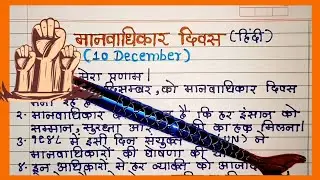 मानवाधिकार दिवस (हिंदी)
(10 December)
मेरा प्रणाम।
को मानवाधिकार दिवस
2. मानवाधिकार है, कि हर इंसान को
सम्मान, सुरक्षा और का हक मिलना।
3. इसी दिन संयुक्त (UN) ने
मानवाधिकारों की घोषणा की
4. इन अधिकारों से हर व्यक्ति को